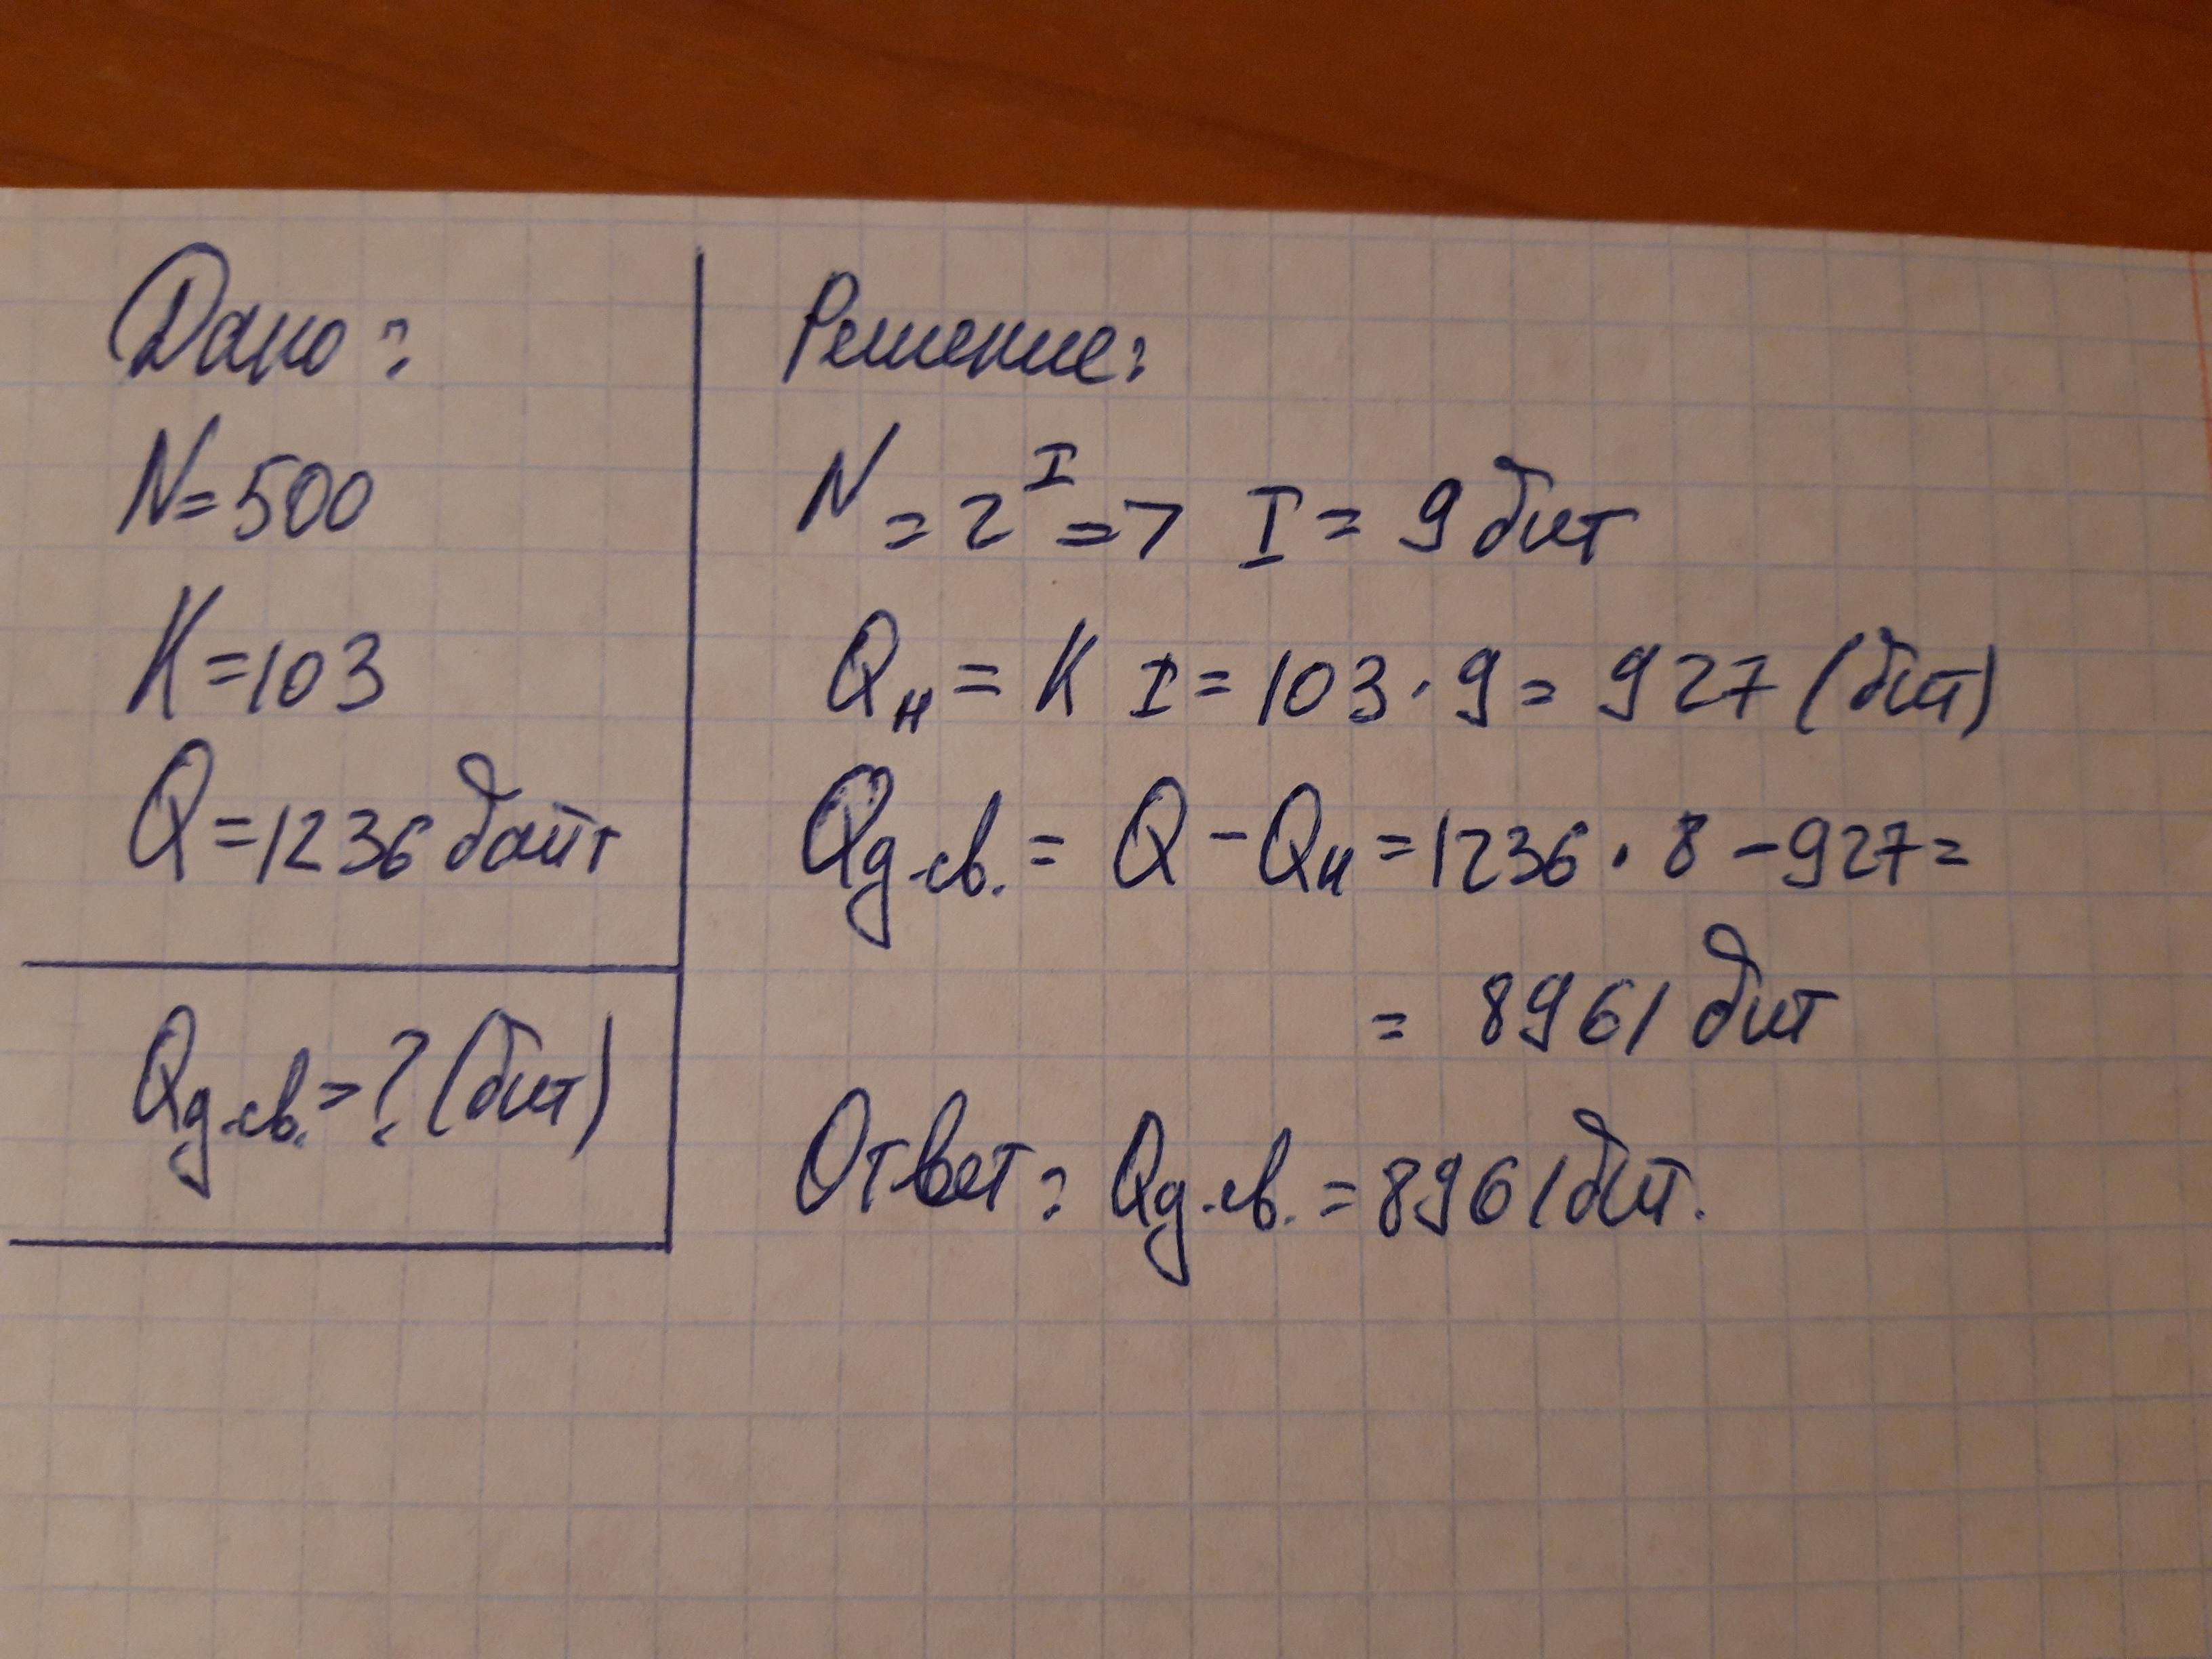 Дано:
N=500
K=103
Q=1236 байт
Qд.св.=? (бит)
Решение:
N = 2^I => I = 9 бит
Qн = K I = 103 · 9 = 927 (бит)
Qд.св. = Q - Qн = 1236 · 8 - 927 =
= 8961 бит
Ответ: Qд.св. = 8961 бит.